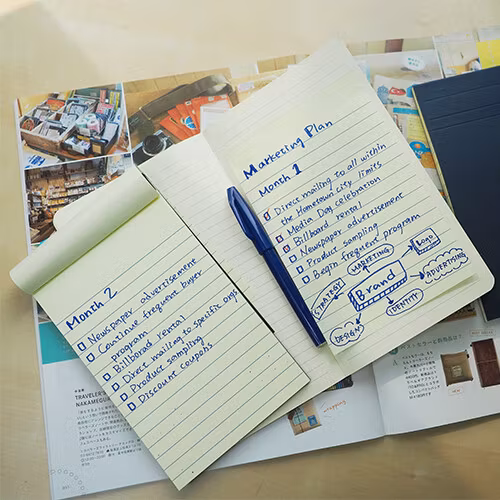 Marketing Plan
Month 1
Direct mailing to all within
the Hometown city limits
Media Day celebration
Billboard rental
Newspaper advertisement
Product sampling
Begin frequent program
LOGO
MARKETING
ADVERTISING
Brand
STRATEGY
IDENTITY
DESIGN
Month 2
Newspaper advertisement
Continue frequent buyer
program
Billborad rental
Direct mailing to specific orgs
Product sampling
Discount coupons
TRAVELER'S
NAKAMEGU